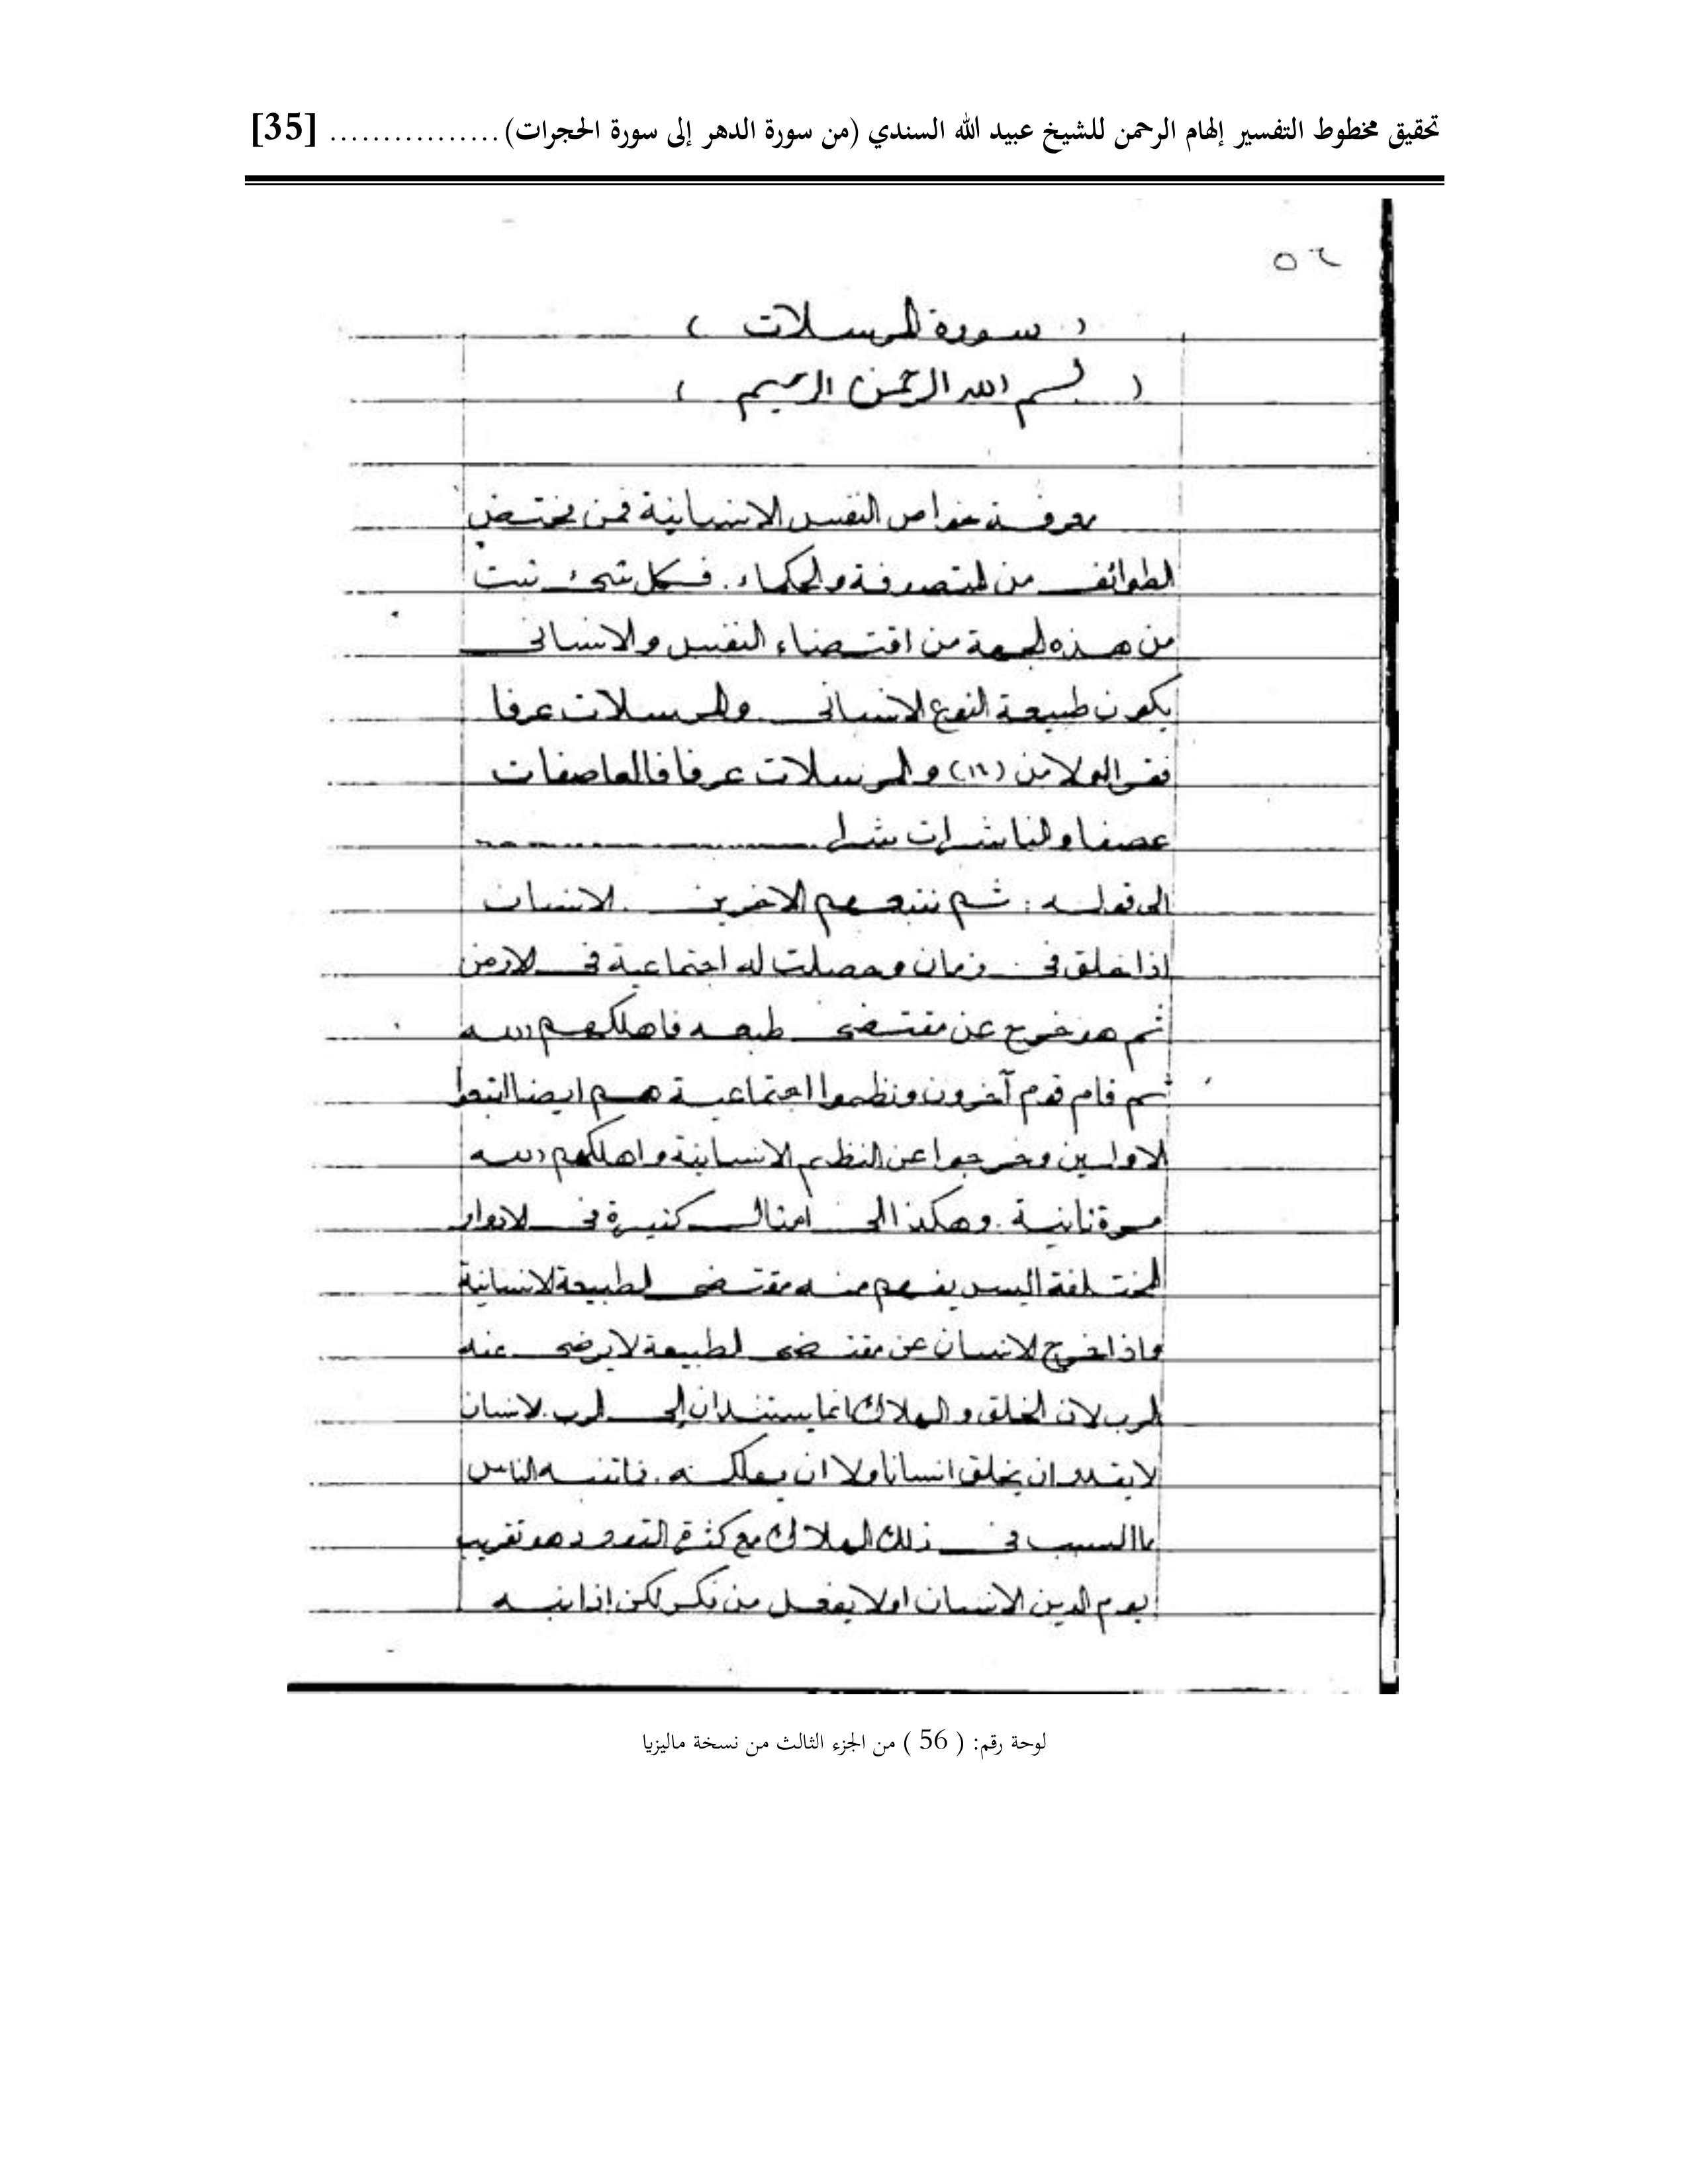 تحقيق مخطوط التفسير إلهام الرحمن للشيخ عبيد الله السندي (من سورة الدهر إلى سورة الحجرات)................ [35]
٥٦
( سورة المرسلات )
( بسم الله الرحمن الرحيم )
معرفة خواص النفس الانسانية فمن مختص
الطوائف من المتصوفة والحكماء. فكل شئ ثبت
من هذه الجهة من اقتضاء النفس والانسانى
يكون طبيعة النوع الانسانى والمرسلات عرفا
(١٦) والمرسلات عرفا فالعاصفات
عصفا والناشرات نشرا
الى قوله : ثم نتبعهم الاخرين . الانسان
اذا خلق فى زمان وحصلت له اجتماعية فى الارض
ثم هو خرج عن مقتضى طبعه فاهلكهم الله
ثم قام قوم آخرون ونظموا اجتماعية هم ايضا اتبعوا
الاولين وخرجوا عن النظم الانسانية واهلكهم الله
مرة ثانية . وهكذا الى امثال كثيرة فى الادوار
المختلفة اليس يفهم منه مقتضى الطبيعة الانسانية
واذا خرج الانسان عن مقتضى الطبيعة لا يرضى عنه
الرب لان الخلق والهلاك انما يستندان إلى الرب. الانسان
لا يقدر ان يخلق انسانا ولا ان يهلكه. فاتنبه الناس
ما السبب فى ذلك الهلاك مع كثرة التعدد هو تقريب
يوم الدين الانسان اولا يفعل من فكر لكن اذا نبه
لوحة رقم: ( 56 ) من الجزء الثالث من نسخة ماليزيا